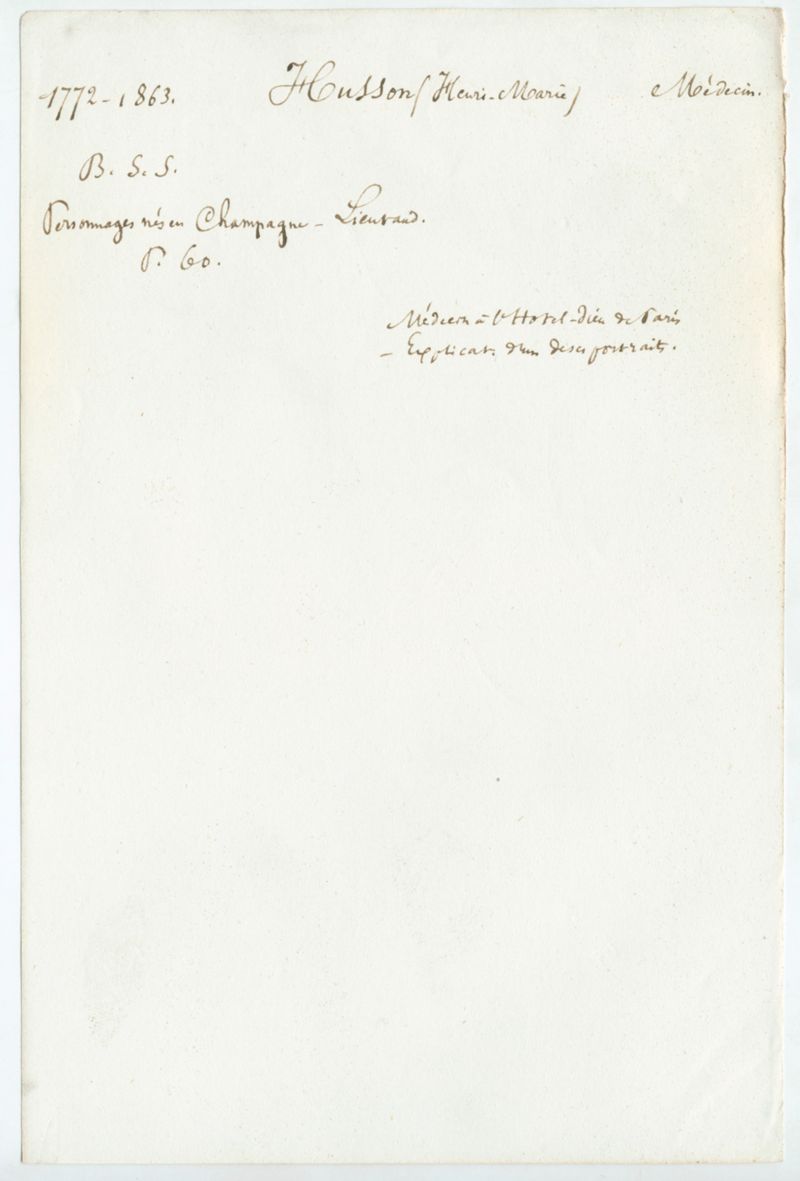 1772-1863. Husson (Henri-Marie) Médecin.
B. S. S.
Personnages nés en Champagne - Lieutaud.
P. 60.
Médecin à l'Hotel-Dieu de Paris
- Explicat. d'un de ses portraits.